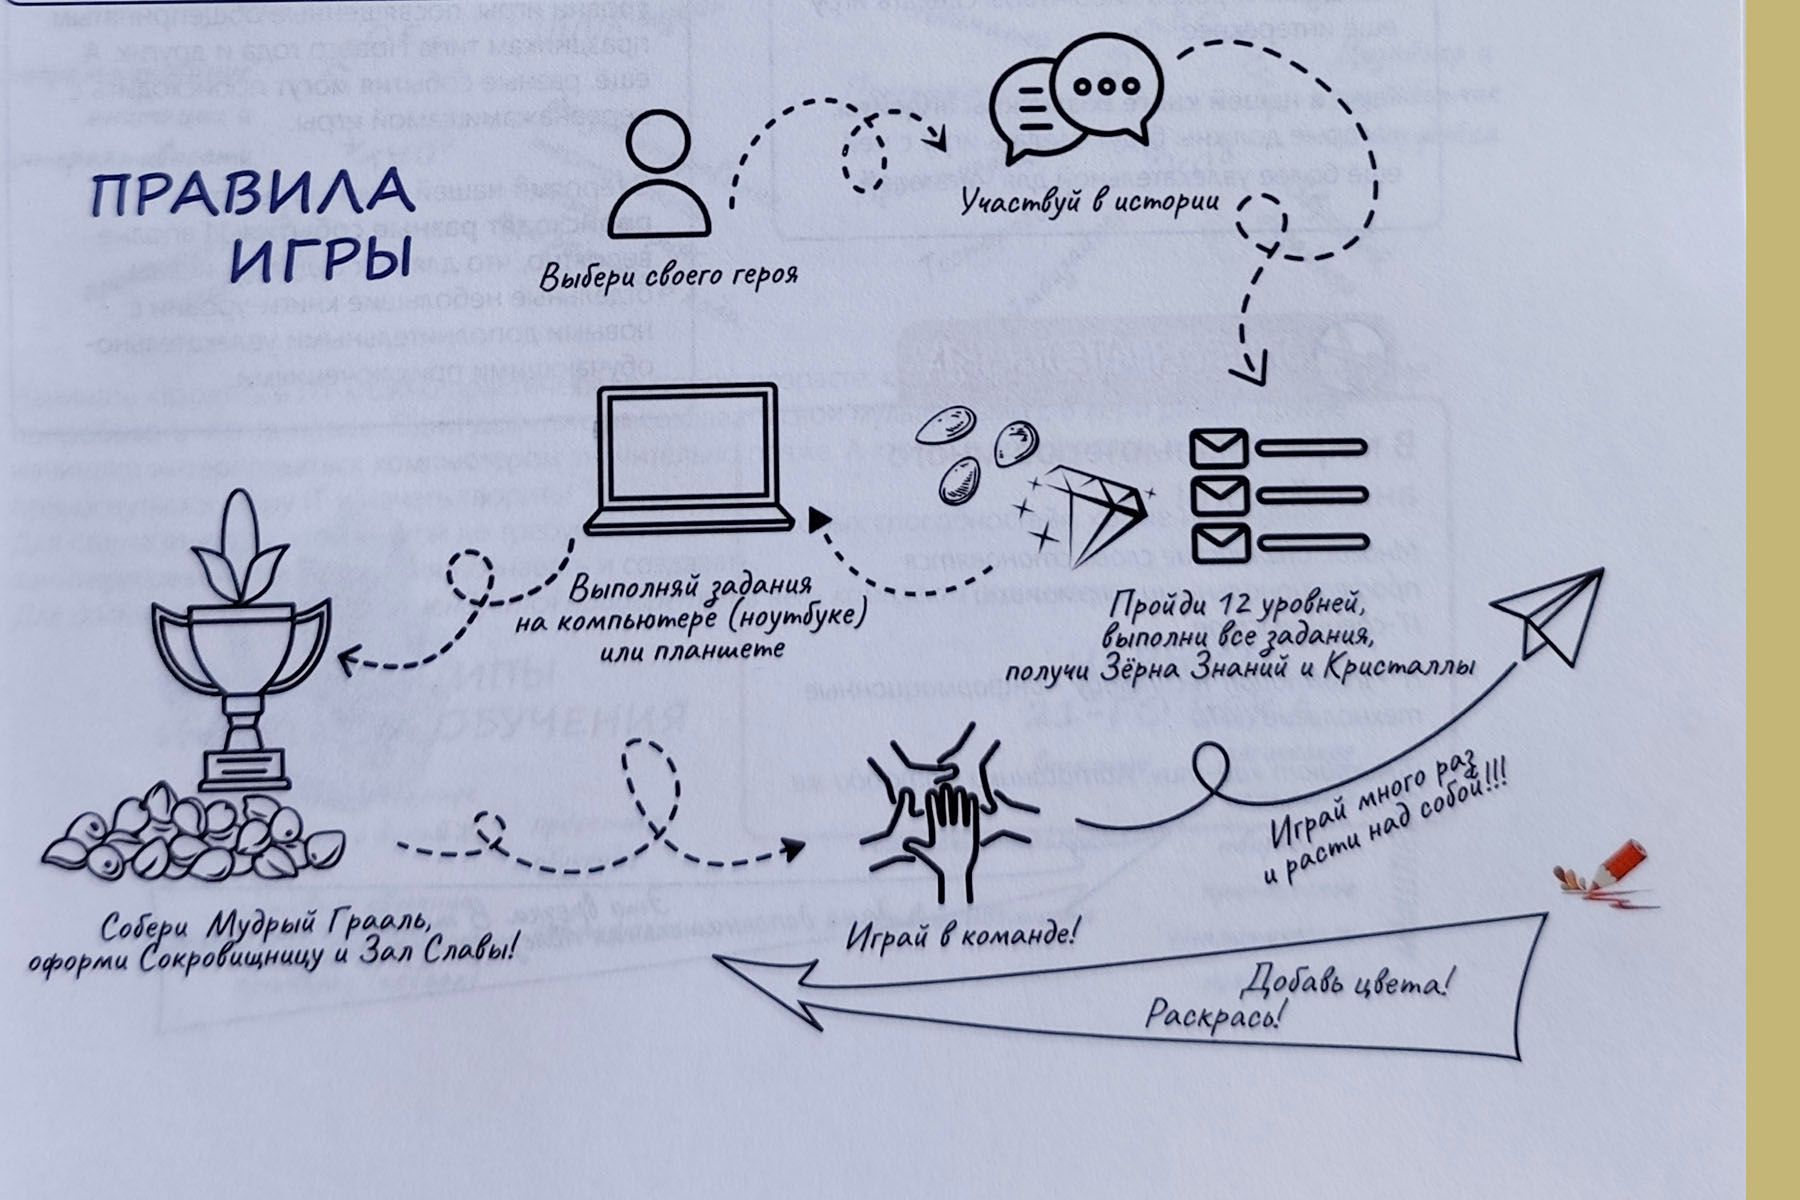 ПРАВИЛА
ИГРЫ
Выбери своего героя
Участвуй в истории
Пройди 12 уровней,
выполни все задания,
получи Зёрна Знаний и Кристаллы
Выполняй задания
на компьютере (ноутбуке)
или планшете
Собери Мудрый Грааль,
оформи Сокровищницу и Зал Славы!
Играй в команде!
Играй много раз
и расти над собой!!!
Добавь цвета!
Раскрась!